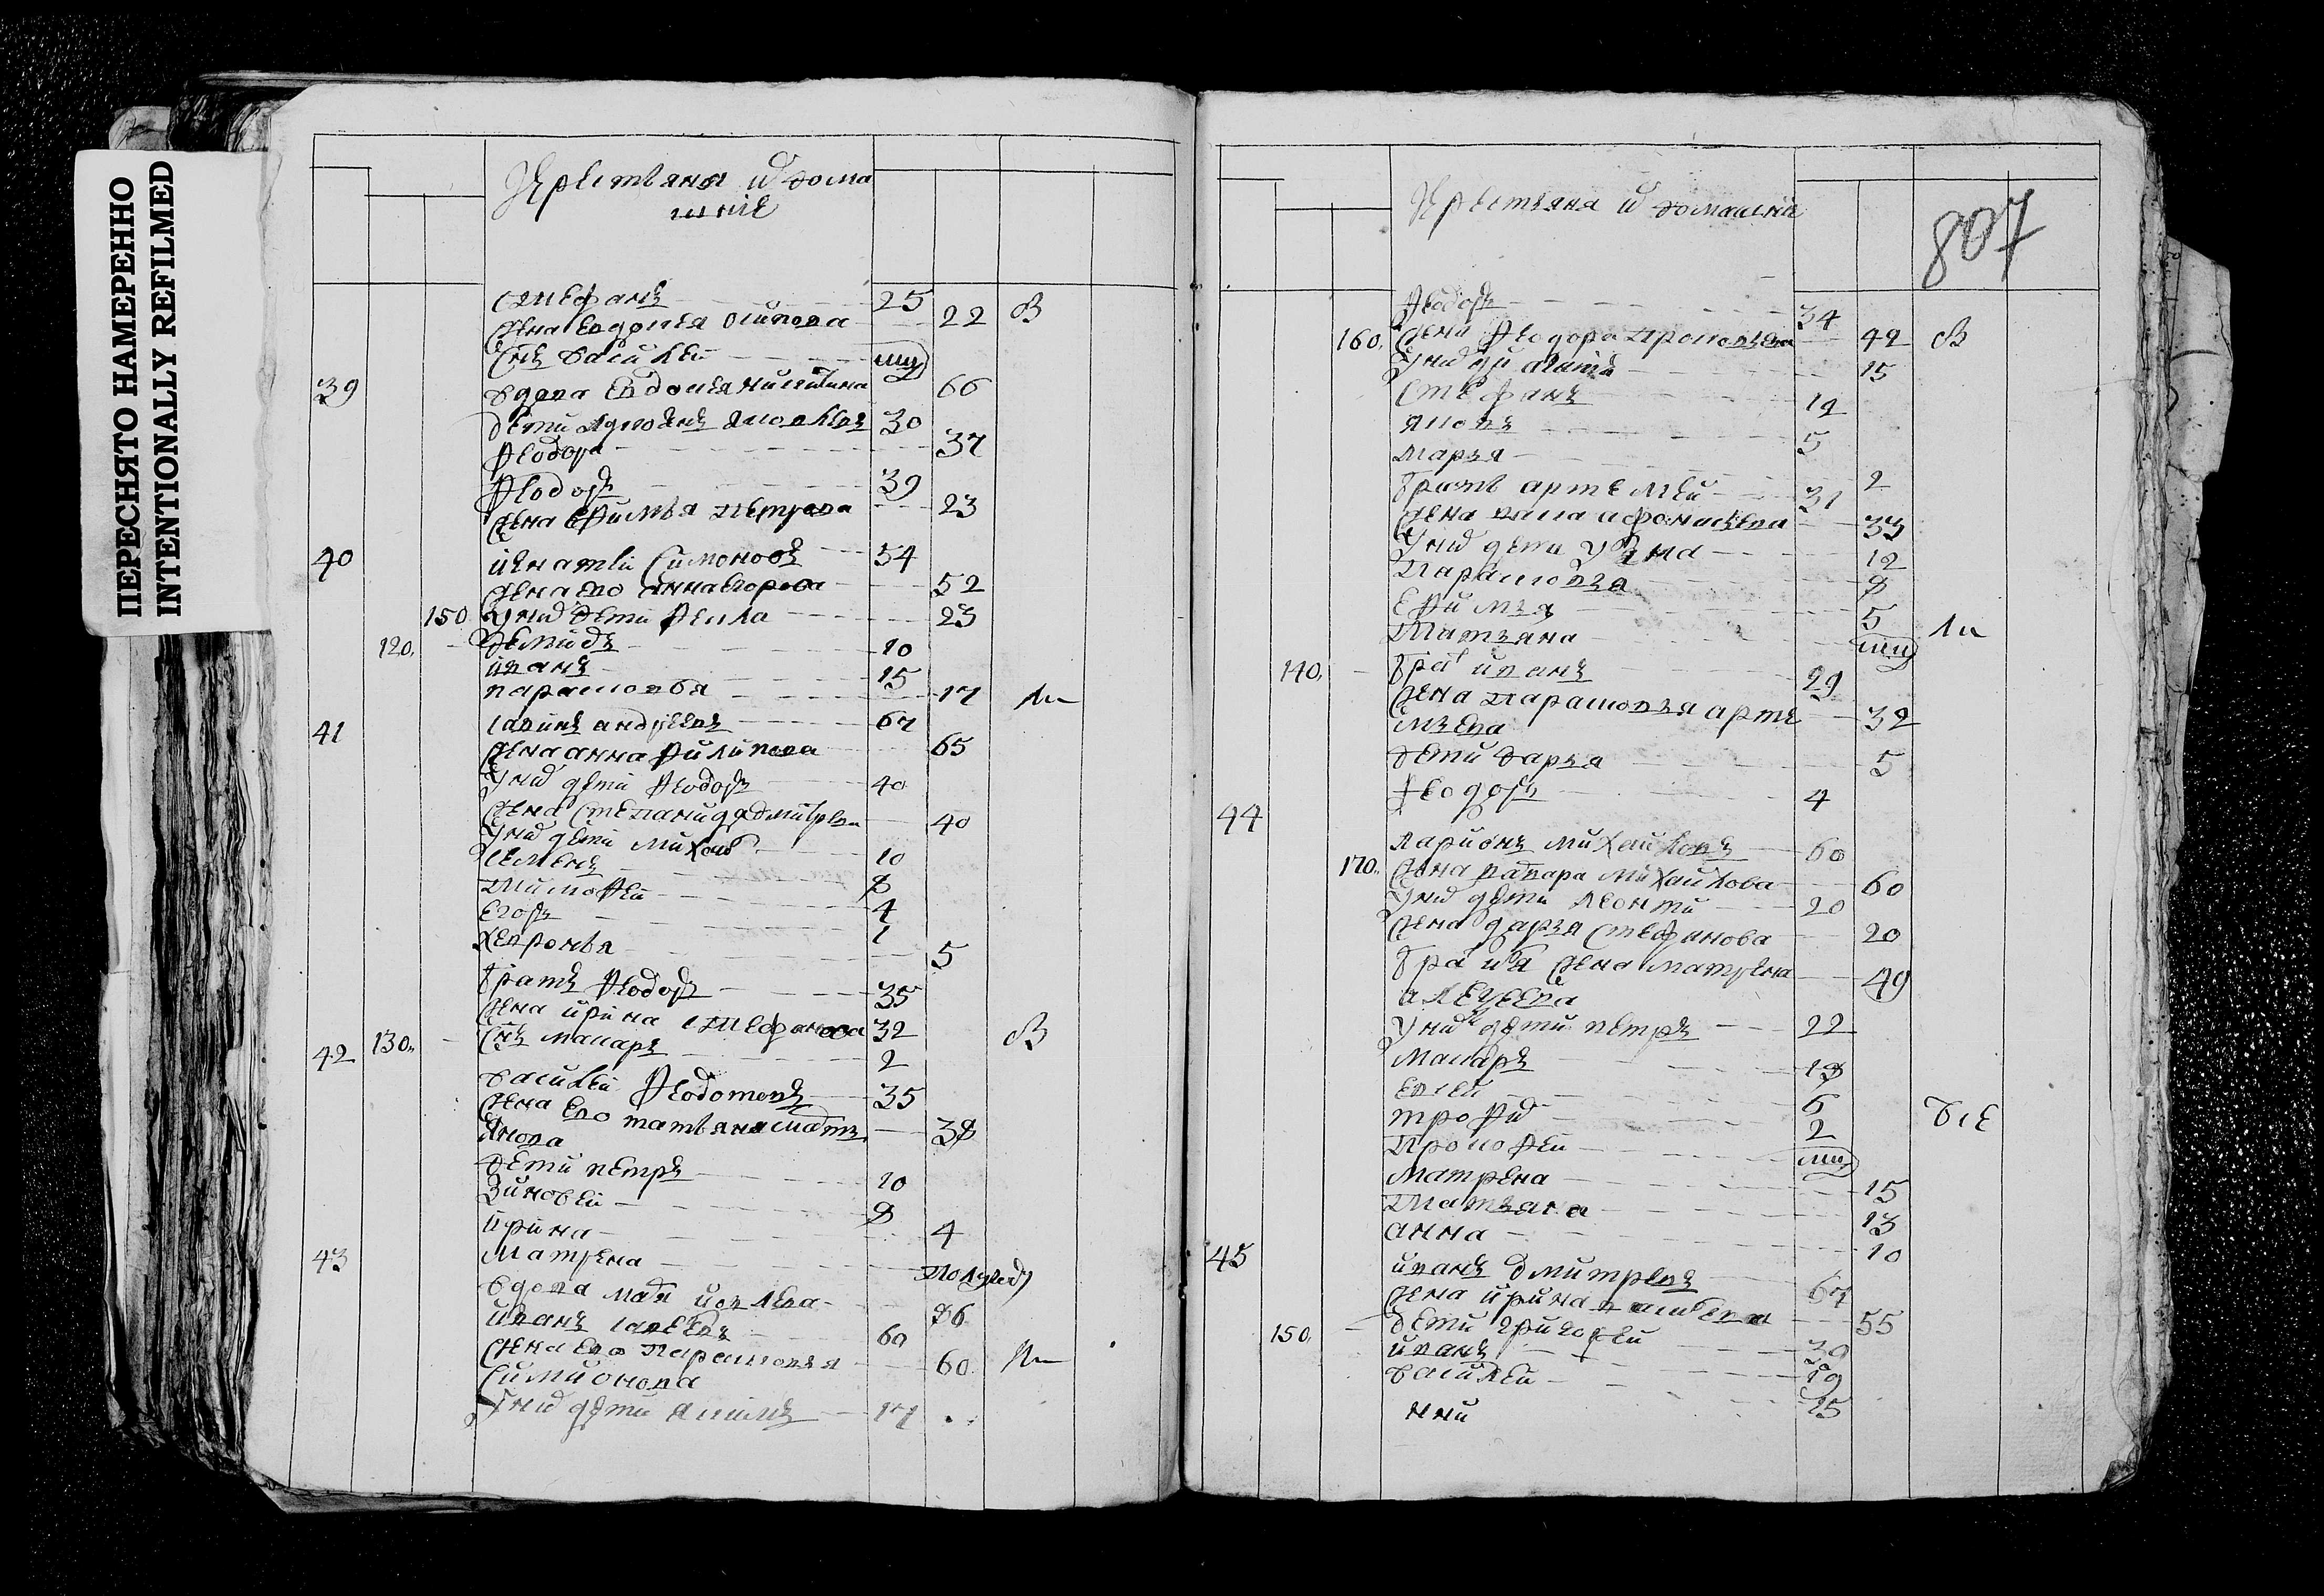 ПЕРЕСНЯТО НАМЕРЕННО
INTENTIONALLY REFILMED
крестьяня и дома
шние
стефанъ 25
жена евдокея осипова 22 В
снъ василеи
39 вдова евдокея никитина 66
дети яковлевъ 30
Ѳеодора 37
Ѳеодоръ 39
жена еѳимья петрова 23
40 игнатеи симоновъ 54
жена его анна егорова 52
150 у нихъ дети Ѳекла 23
120 демидъ 10
иванъ 15
парасковья 17
41 савинъ андреевъ 67
жена анна Ѳилипова 65
у нихъ дети Ѳеодоръ 40
жена степанида дмитрева 40
у нихъ дети михаило 10
семенъ 8
тимоѳеи 4
егоръ 1
хевронья 5
братъ Ѳеодоръ 35
жена ирина стефанова 32 В
130 снъ макаръ 2
42 василеи Ѳедотовъ 35
жена его татьяна 38
дети петръ 10
зиновеи 8
ирина 4
матрена полугоду
43 вдова иовлева 86
иванъ савеевъ 60
жена его парасковья 60
симионова
у нихъ дети акимъ 17
крестьяня и домашние
807
Ѳеодоръ 34
160 жена Ѳеодора прокопьева 42 В
у нихъ 15
стефанъ 12
яковъ 5
марья 2
братъ артемеи 31
жена васа афонасьева 33
у нихъ дети 12
парасковья 8
еѳимья 5
татьяна
140 бра иванъ 29
жена парасковья арте 32
мьева
дети дарья 5
Ѳеодоръ 4
44 ларионъ михаиловъ 60
170 жена вавара михаилова 60
у нихъ дети леонти 20
жена дарья стефанова 20
бра жена матрена 49
алексеева
у нихъ дети петръ 22
макаръ 18
евсеи 6
троѳи 2 все
прокоѳеи
матрена 15
татьяна 13
анна 10
45 иванъ дмитревъ 67
жена ирина 55
150 дети григореи 30
иванъ 19
василеи 15